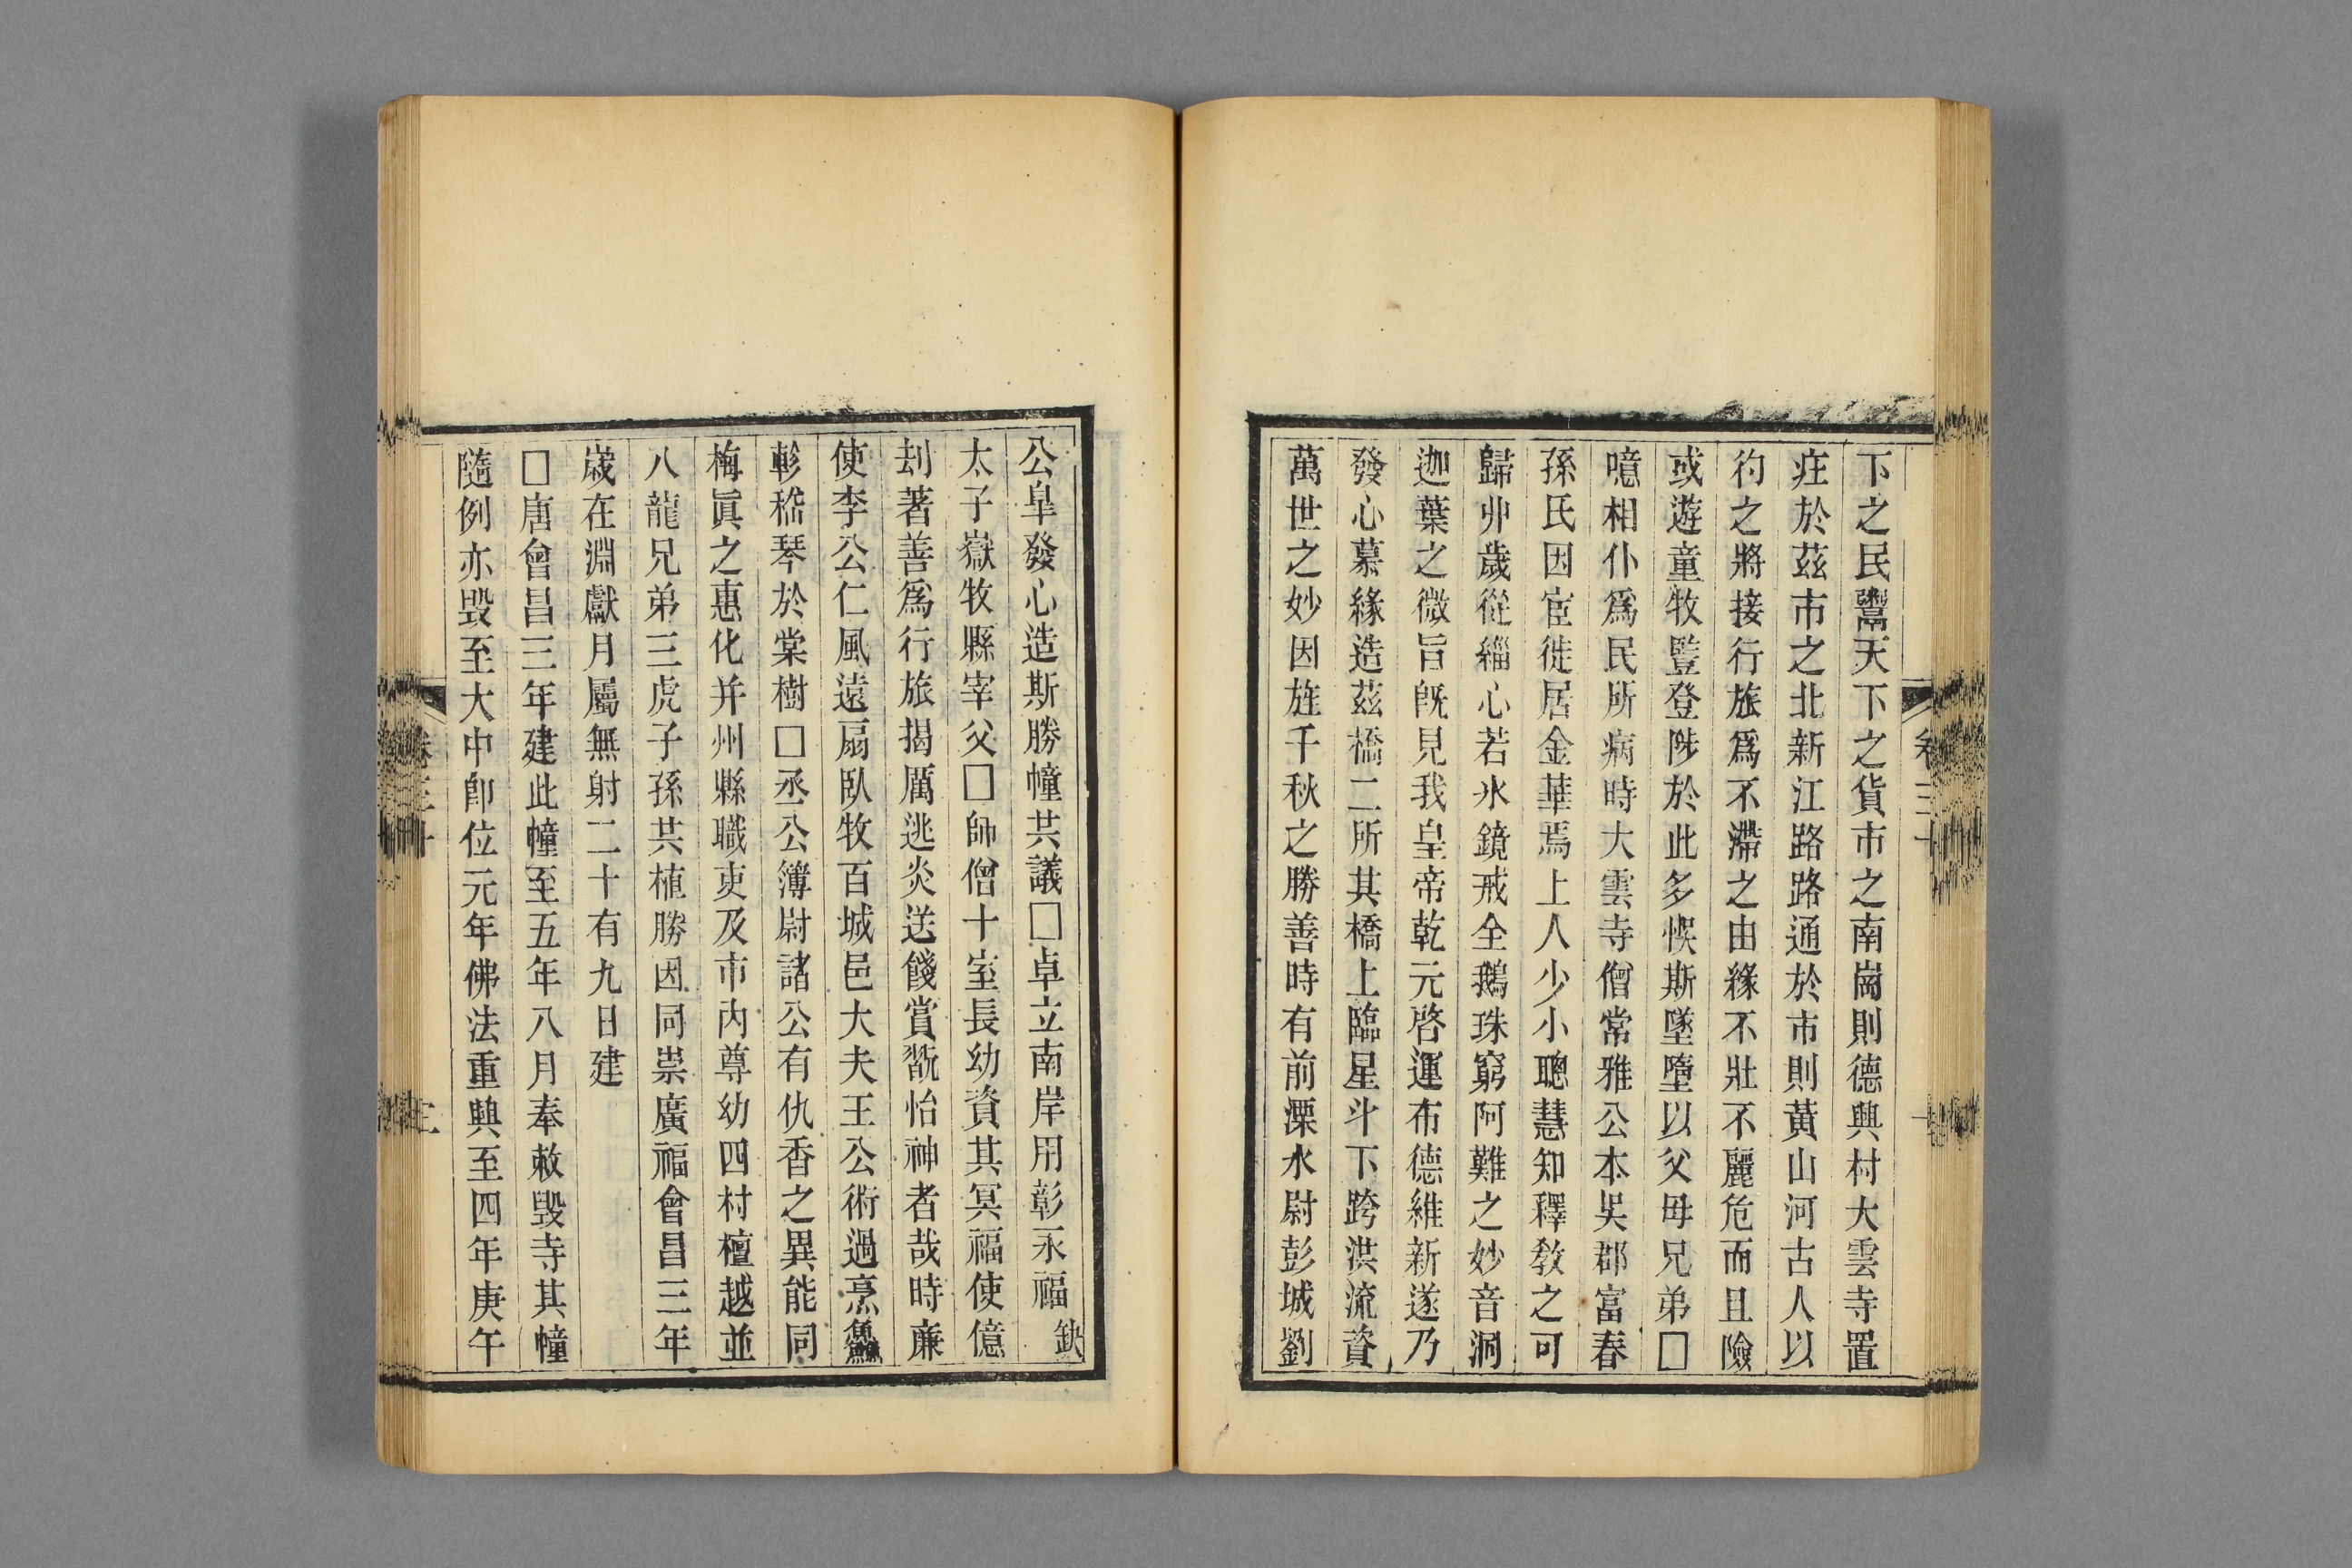 下之民鬻天下之貨市之南崗則德興村大雲寺置
疰於茲市之北新江路路通於市則黃山河古人以
彴之將接行旅爲不滯之由緣不壯不麗危而且險
或遊童牧豎登陟於此多悞斯墜墮以父母兄弟□
噫相仆爲民所病時大雲寺僧常雅公本吳郡富春
孫氏因宦徙居金華焉上人少小聰慧知釋敎之可
歸丱歲從緇心若氷鏡戒全鵝珠窮阿難之妙音洞
迦葉之微旨旣見我皇帝乾元啓運布德維新遂乃
發心慕緣造茲橋二所其橋上臨星斗下跨洪流資
萬世之妙因旌千秋之勝善時有前溧水尉彭城劉
卷三十
公皐發心造斯勝幢共議□卓立南岸用彰永福缺
太子嶽牧縣宰父□師僧十室長幼資其冥福使億
刦著善爲行旅揭厲逃炎送餞賞翫怡神者哉時廉
使李公仁風遠扇臥牧百城邑大夫王公術過烹鱻
軫嵇琴於棠樹□丞公簿尉諸公有仇香之異能同
梅眞之惠化并州縣職吏及市內尊幼四村檀越並
八龍兄弟三虎子孫共植勝因同祟廣福會昌三年
歲在淵獻月屬無射二十有九日建
□唐會昌三年建此幢至五年八月奉敕毀寺其幢
隨例亦毀至大中卽位元年佛法重興至四年庚午
卷三十